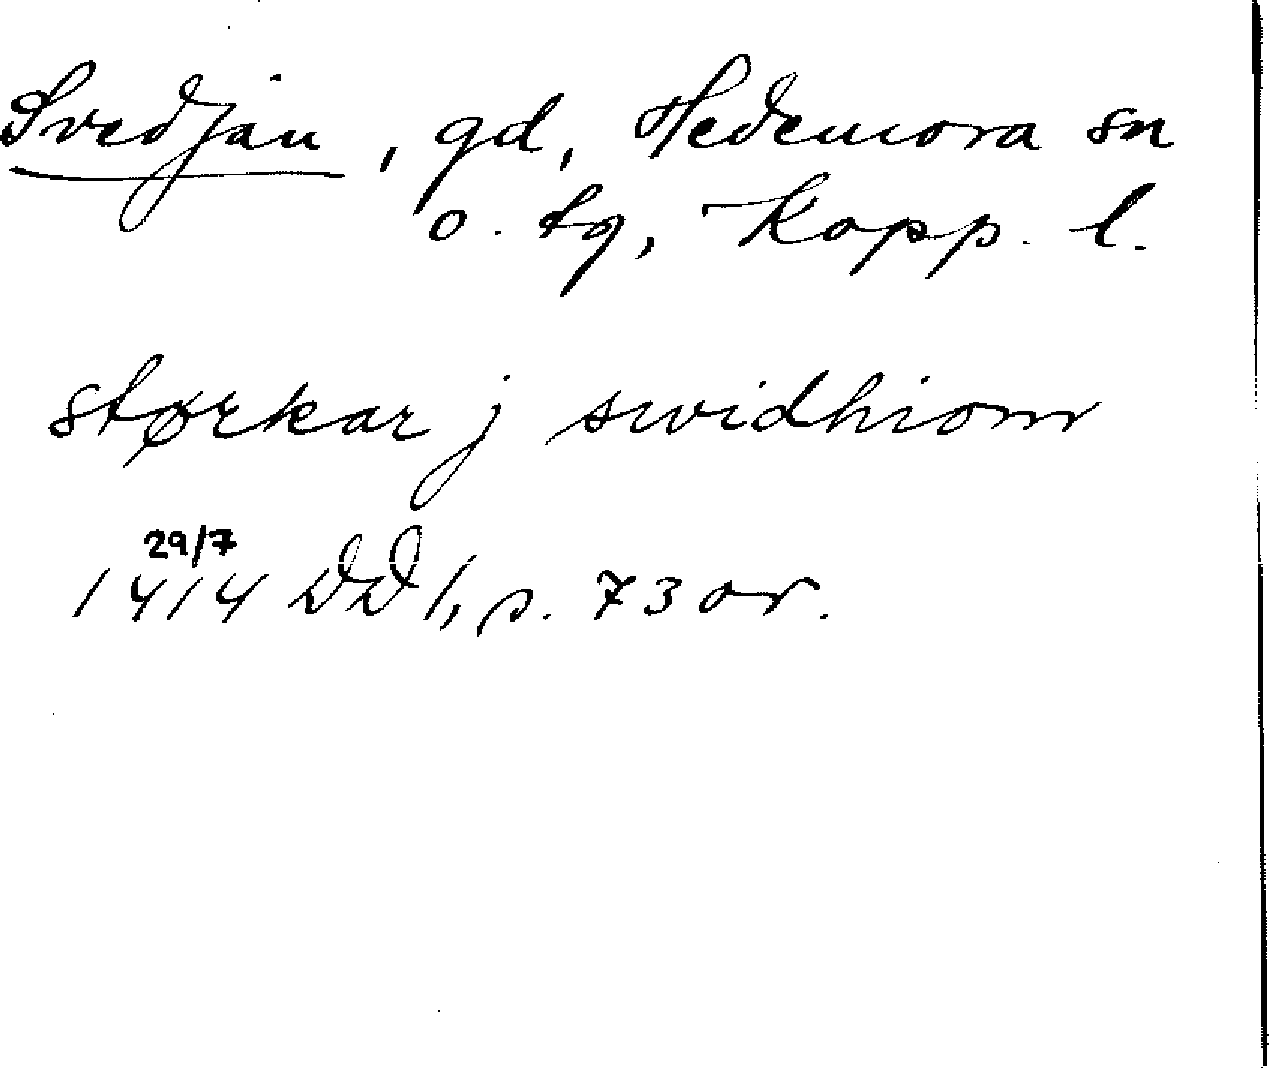 Svedjan, gd, Hedemora sn
o. tg, Kopp. l.
størkar j swidhiom
29/7
1414 DD 1, s. 73 or.